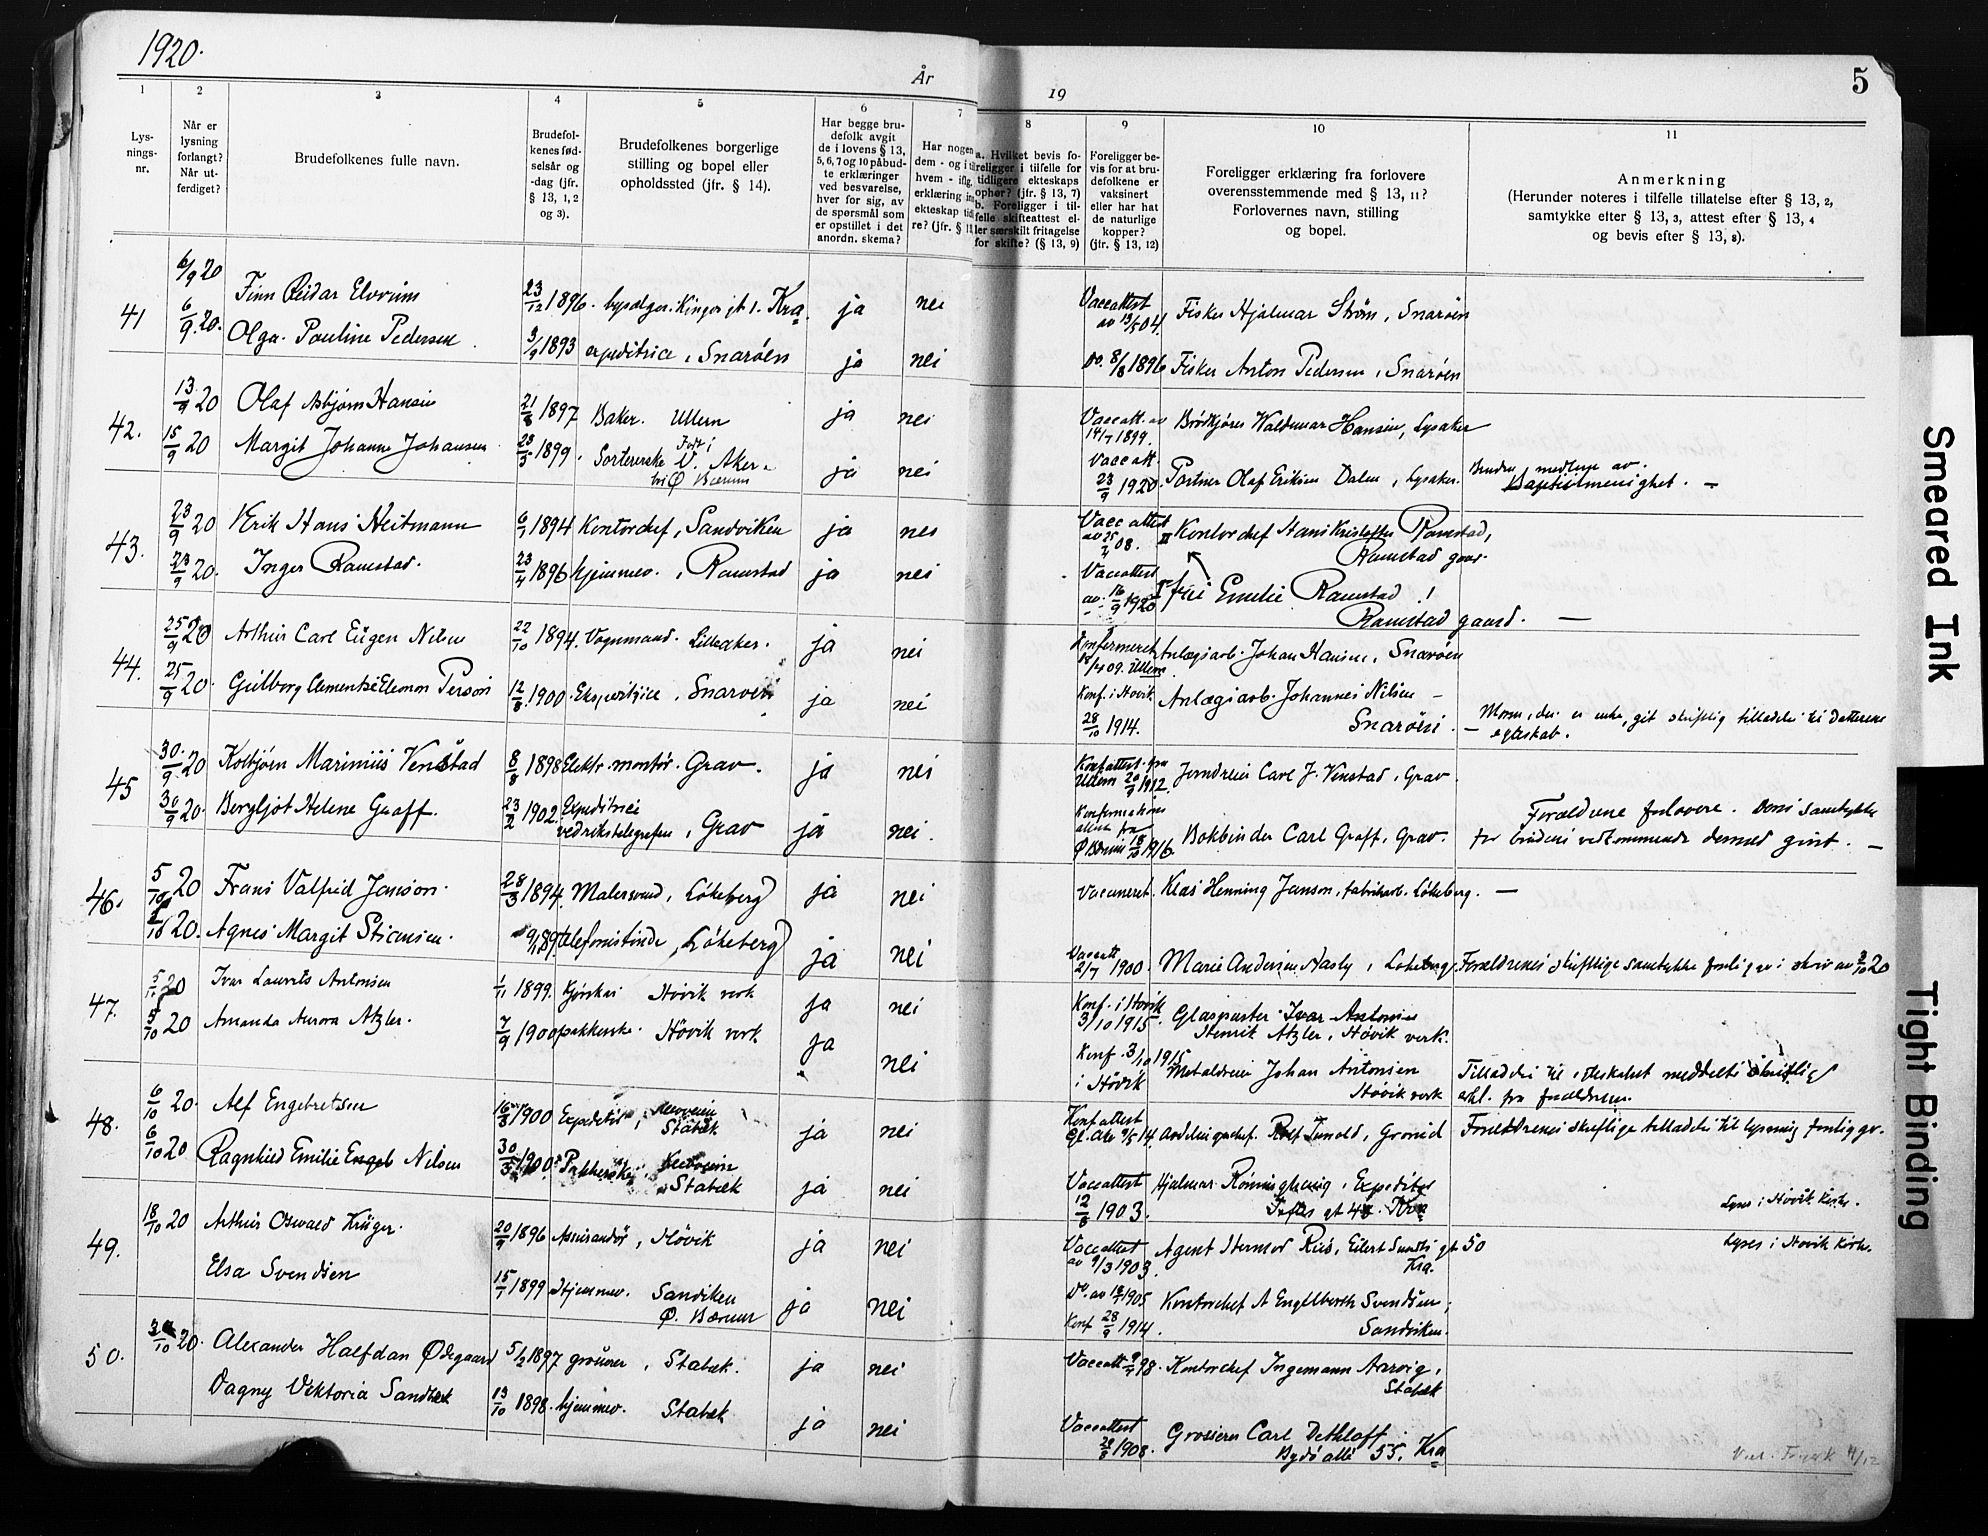 1920.
År
19
5
1
2
3
4
5
6
7
8
9
10
11
Lys-
nings-
nr.
Når er
lysning
forlangt?
Når ut-
ferdiget?
Brudefolkenes fulle navn.
Brudefol-
kenes fød-
selsår og
-dag (jfr.
§ 13, 1, 2
og 3).
Brudefolkenes borgerlige
stilling og bopel eller
opholdssted (jfr. § 14).
Har begge bru-
defolk avgit
de i lovens § 13,
5, 6, 7 og 10 påbud-
te erklæringer
ved besvarelse,
hver for sig, av
de spørsmål som
er opstillet i det
anordn. skema?
Har nogen
dem - og i
hvem - iflg.
erklæring
ekteskap tid
re? (jfr. §
a. Hvilket bevis fo-
religger i tilfelle for
tidligere ekteskaps
ophør? (jfr. § 13, 7)
b. Foreligger i til-
felle skifteattest el-
ler særskilt fritagelse
for skifte? (§ 13, 9)
Foreligger be-
vis for at bru-
defolkene er
vaksinert
eller har hat
de naturlige
kopper?
(jfr. § 13, 12)
Foreligger erklæring fra forlovere
overensstemmende med § 13, 11?
Forlovernes navn, stilling
og bopel.
Anmerkning
(Herunder noteres i tilfelle tillatelse efter § 13, 2,
samtykke efter § 13, 3, attest efter § 13, 4
og bevis efter § 13, 8).
41
6/9 20 Finn Reidar Elvrum 23/12 1896. Kra. ja nei Vaccattest av 13/5 04. Fisker Hjalmar Strøm, Snarøen
6/9 20. Olga Pauline Pedersen 3/9 1893 expeditrice, Snarøen ja nei Do. 8/8 1896 Fisker Anton Pedersen, Snarøen
42.
13/9 20 Olaf Asbjørn Hansen 21/8 1897 Baker. Ullern ja nei Vaccatt. av 14/7 1899. Brødkjører Waldemar Hansen, Lysaker
15/9 20 Margit Johanne Johansen 23/5 1899. Sortererske V. Aker. Ø Bærum ja nei Vaccatt. 23/9 1920. Portner Olaf Eriksen Dalen, Lysaker. Bruden medlem av Baptistmenighet. —
43.
23/9 20 Erik Hans Heitmann 6/1 1894 Kontorchef, Sandviken ja nei Vaccattest av 25/2 08. II Kontorchef Hans Kristoffer Ramstad,
Ramstad gaar.
23/9 20. Inger Ramstad. 23/4 1896 hjemmev., Ramstad ja nei Vaccattest av 16/9 1920 I frue Emelie Ramstad!
Ramstad gaard. —
44.
25/9 20 Arthur Carl Eugen Nilsen 22/10 1894. Vognmand. Lilleaker. ja nei Konfermeret 18/4 09. Ullern Anlægsarb. Johan Hansen, Snarøen
25/9 20. Gulborg Clementse Eleonor Person 12/8 1900. Expeditrice, Snarøen ja nei Konf. i Høvik 28/10 1914. Anlægsarb. Johannes Nilsen —
Snarøen. — Moren, der er enke, git skriftlig tilladelse til datterens
egteskab.
45
30/9 20 Kolbjørn Marinius Venstad 8/8 1898 Elektr. montør. Grav. ja nei Konfattest. fra Ullern 20/9 1912. Jerndreier Carl J. Venstad, Grav
30/9 20. Bergljot Helene Graff. 23/2 1902. Expeditrice
ved rikstelegrafen, Grav ja nei. Konfirmations attest fra Ø Bærum 18/10 1916. Bokbinder Carl Graff, Grav. Forældrene forlovere. Deres samtykke
for brudens vedkommende dermed givt. —
46.
5/10 20 Frans Valfrid Janson. 28/3 1894. Malersvend, Løkeberg ja nei Vaccineret. Klas Henning Janson, fabrikarb. Løkeberg. —
20. Agnes Margit Stiansen. telefonistinde, Løkeberg ja nei Vaccatt. 2/7 1900. Marie Andersen Nasby, Løkeberg Forældrenes skriftlige samtykke foreligger i skriv av 2/10 20
47.
5/10 20 Ivar Laurits Antonsen 1/11 1899. Høvik verk ja nei Konf. i Høvik 3/10 1915. Glaspuster Ivar Antonsen
5/10 20 Amanda Aurora Atzler. 7/9 1900 pakkerske. Høvik verk ja nei Henrik Atzler, Høvik verk.
Konf. 3/10 1915 i Høvik Metaldreier Johan Antonsen
Høvik verk Tilladelse til egteskabet meddelt skriftlig
erkl. fra forældrene.
48.
6/10 20. Alf Engebretsen 16/3 1900 Expeditør, Stabæk ja nei Konfattest Gl. Aker 9/5 14. Avdelingschef. Rolf Tunold, Gronid Forældrenes skriftlige tilladelse til lysning foreligger.
6/10 20 Ragnhild Emilie Engeb Nilsen 30/3 1900. Pakkerske, Stabæk ja nei Vaccattest 12/8 1903. Hjalmar Rønningheug, Expeditør
Toftes gt 48. Kra Lyses i Høvik Kirke.
49.
18/10 20 Arthur Oswald Krüger. 20/9 1896 Assurandør, Høvik ja nei Vaccattest av 9/3 1903. Agent Hermod Riis, Eilert Sundts gt 50
Kra. Lyses i Høvik Kirke.
Elsa Svendsen 15/1 1899 Hjemmev. Sandviken
Ø. Bærum ja nei Do. av 1905 Konf 28/9 1914. Kontorchef A Englberth Svendsen,
Sandviken.
50.
10 20. Alexander Halfdan Ødegaard 5/2 1897 grosserer, Stabæk. ja nei Vaccatt 98. Kontorchef Ingemann Aarvig,
Stabæk
Dagny Viktoria Sandbæk 13/10 1898. hjemmev. Stabæk ja nei Vaccattest 28/8 1908. Grosserer Carl Dethloff
Bygdø allé 55. Kra
Smeared Ink
Tight Binding